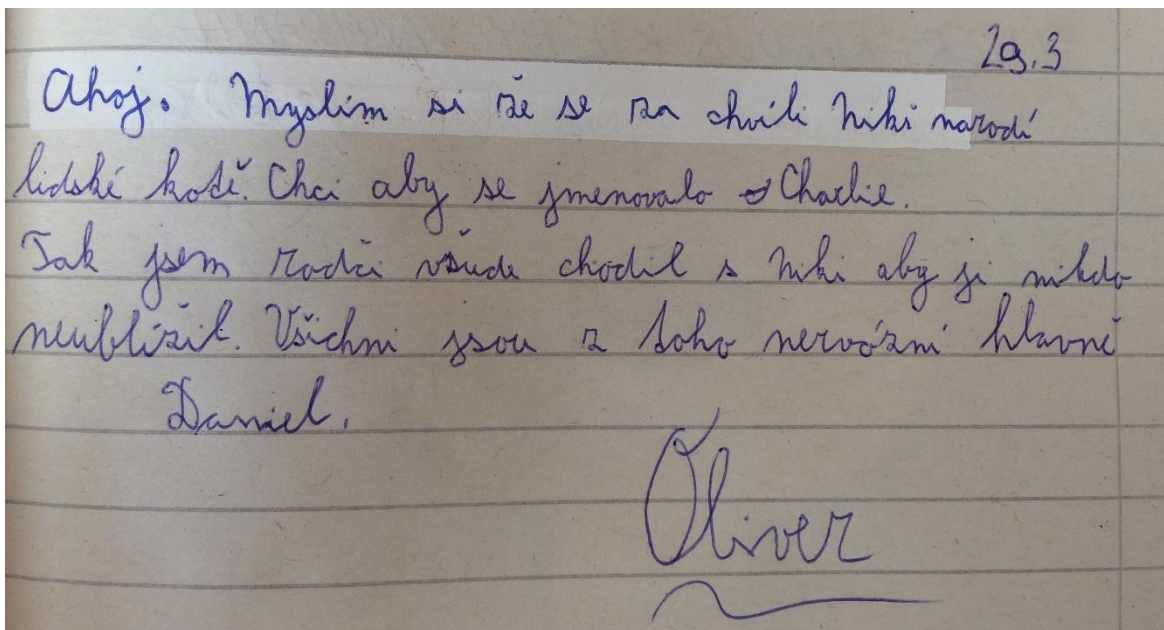 29.3
Ahoj. Myslím si že se za chvíli Niki narodí
lidské kotě. Chci aby se jmenovalo Charlie.
Tak jsem radči všude chodil s Niki aby jí nikdo
neublížil. Všichni jsou z toho nervózní hlavně
Daniel.
Oliver